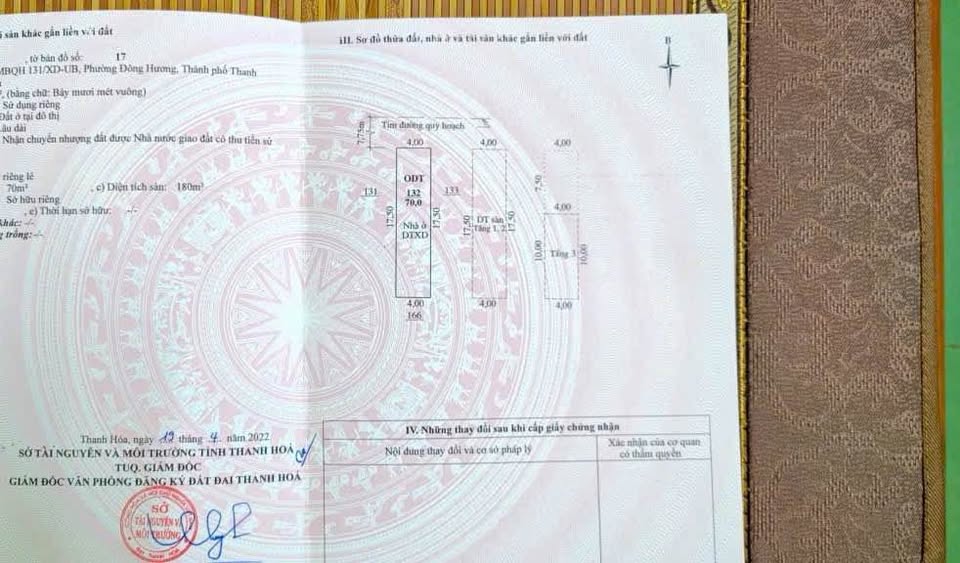 i sản khác gắn liền với đất
, tờ bản đồ số: 17
MBQH 131/XD-UB, Phường Đông Hương, Thành phố Thanh
, (bằng chữ: Bảy mươi mét vuông)
Sử dụng riêng
Đất ở tại đô thị
Lâu dài
Nhận chuyển nhượng đất được Nhà nước giao đất có thu tiền sử
riêng lẻ
70m² , c) Diện tích sàn: 180m²
Sở hữu riêng
, e) Thời hạn sở hữu: -/-
khác: -/-
g trồng:-/-
Thanh Hóa, ngày 19 tháng 4 năm 2022
SỞ TÀI NGUYÊN VÀ MÔI TRƯỜNG TỈNH THANH HOÁ
TUQ. GIÁM ĐỐC
GIÁM ĐỐC VĂN PHÒNG ĐĂNG KÝ ĐẤT ĐAI THANH HOÁ
SỞ
TÀI NGUYÊN VÀ
MÔI TRƯỜNG
III. Sơ đồ thửa đất, nhà ở và tài sản khác gắn liền với đất
B
Tim đường quy hoạch
7,75m
4,00 4,00 4,00
ODT
131 132 133
70,0
7,50
17,50 17,50
Nhà ở
DTXD
17,50 17,50
DT sàn
Tầng 1, 2
4,00
10,00 10,00
Tầng 3
4,00 4,00 4,00
166
IV. Những thay đổi sau khi cấp giấy chứng nhận
Nội dung thay đổi và cơ sở pháp lý
Xác nhận của cơ quan
có thẩm quyền